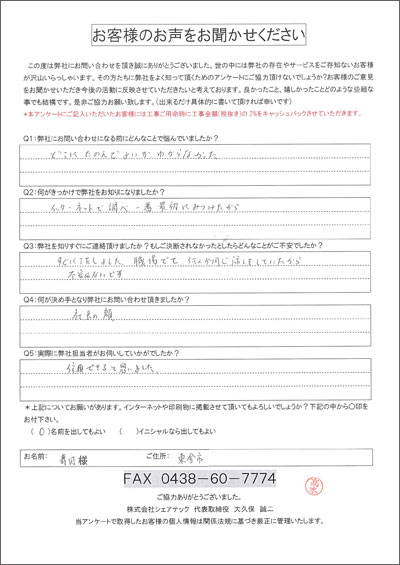 お客様のお声をお聞かせください
この度は弊社にお問い合わせを頂き誠にありがとうございました。世の中には弊社の存在やサービスをご存知ないお客様
が沢山いらっしゃいます。その方たちに弊社をよく知って頂くためのアンケートにご協力頂けないでしょうか?お客様のご意見
をお聞かせいただき今後の活動に反映させていただきたいと考えております。良かったこと、嬉しかったことどのような些細な
事でも結構です。是非ご協力お願い致します。(出来るだけ具体的に書いて頂ければ幸いです)
*本アンケートにご記入いただいたお客様には工事ご用命時に工事金額(税抜き)の2%をキャッシュバックさせていただきます。
Q1:弊社にお問い合わせになる前にどんなことで悩んでいましたか?
どこにたのんでよいかわからなかった
Q2:何がきっかけで弊社をお知りになりましたか?
インターネットで調べ一番最初にみつけたから
Q3:弊社を知りすぐにご連絡頂けましたか?もしご決断されなかったとしたらどんなことがご不安でしたか?
すぐに電話しました。職場でも何人か同じ話しをしていたから
不安はないです
Q4:何が決め手となり弊社にお問い合わせ頂きましたか?
社長の顔
Q5:実際に弊社担当者がお伺いしていかがでしたか?
信頼できると思いました。
*上記についてお願いがあります。インターネットや印刷物に掲載させて頂いてもよろしいでしょうか?下記の中から〇印を
お付下さい。
(〇)名前を出してもよい ( )イニシャルなら出してもよい
お名前: 様 ご住所: 東金市
FAX 0438-60-7774
ご協力ありがとうございました。
株式会社シェアテック 代表取締役 大久保 誠二
当アンケートで取得したお客様の個人情報は関係法規に基づき厳正に管理いたします。